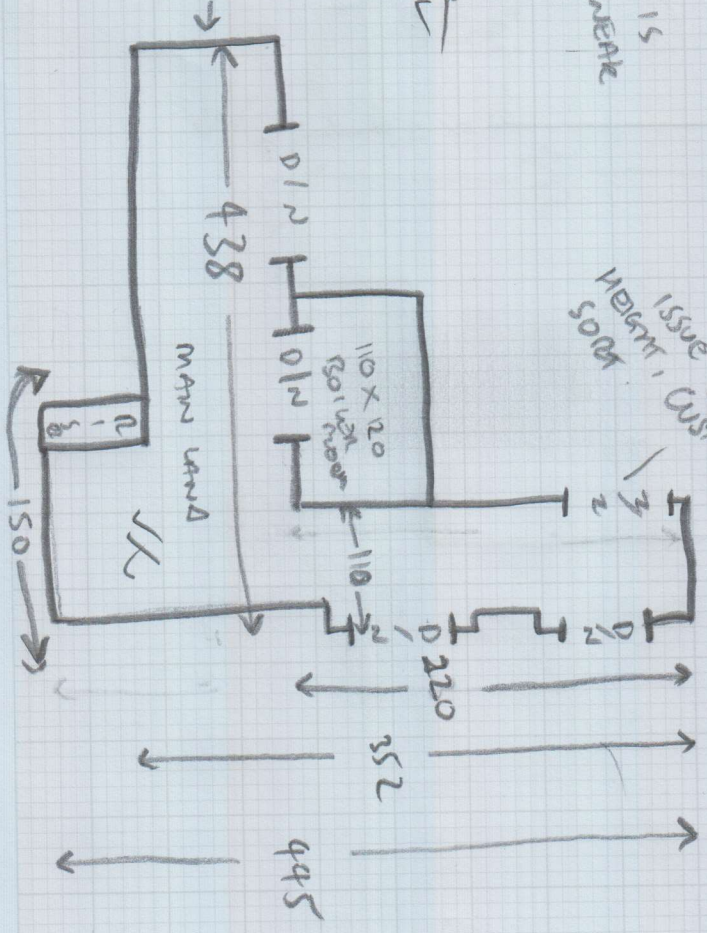 IS
NEAR
ISSUE
HEIGHT, CUS
SORT
D/N
438
D/N
110 X 120
BOILER
ROOM
MAIN LAND
150
110
D/N
D/N
220
352
445